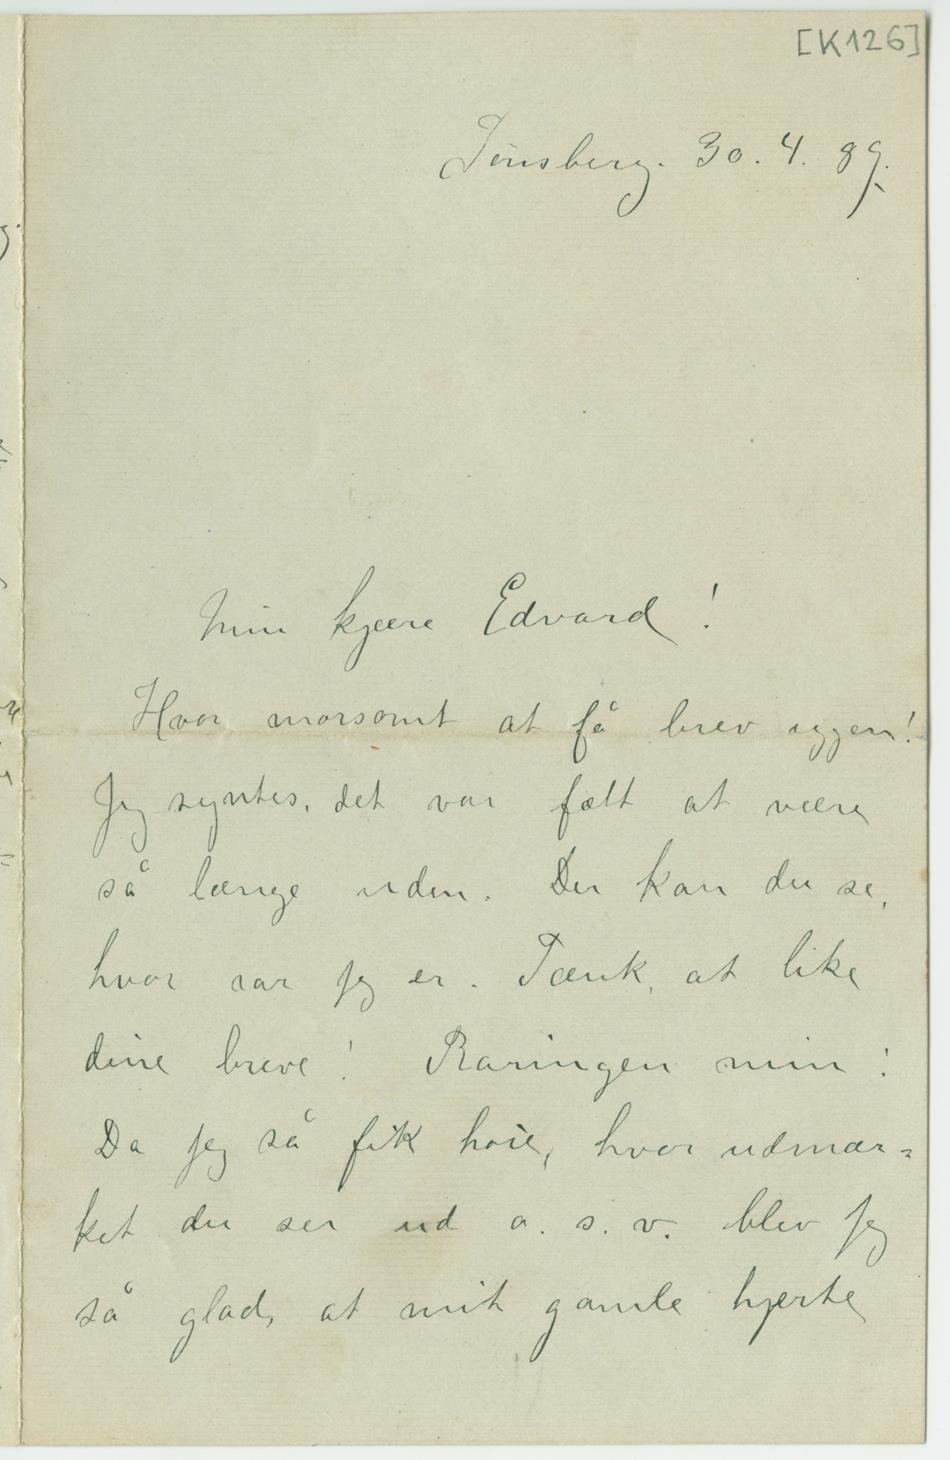 [K126]
Tønsberg. 30. 4. 89.
Min kjære Edvard!
Hvor morsomt at få brev iggen!
Jeg syntes, det var fælt at være
så længe uden. Der kan du se,
hvor rar jeg er. Tænk, at like
dine breve! Raringen min!
Da jeg så fik høre, hvor udmær=
ket du ser ud o. s. v. blev jeg
så glad, at mit gamle hjerte